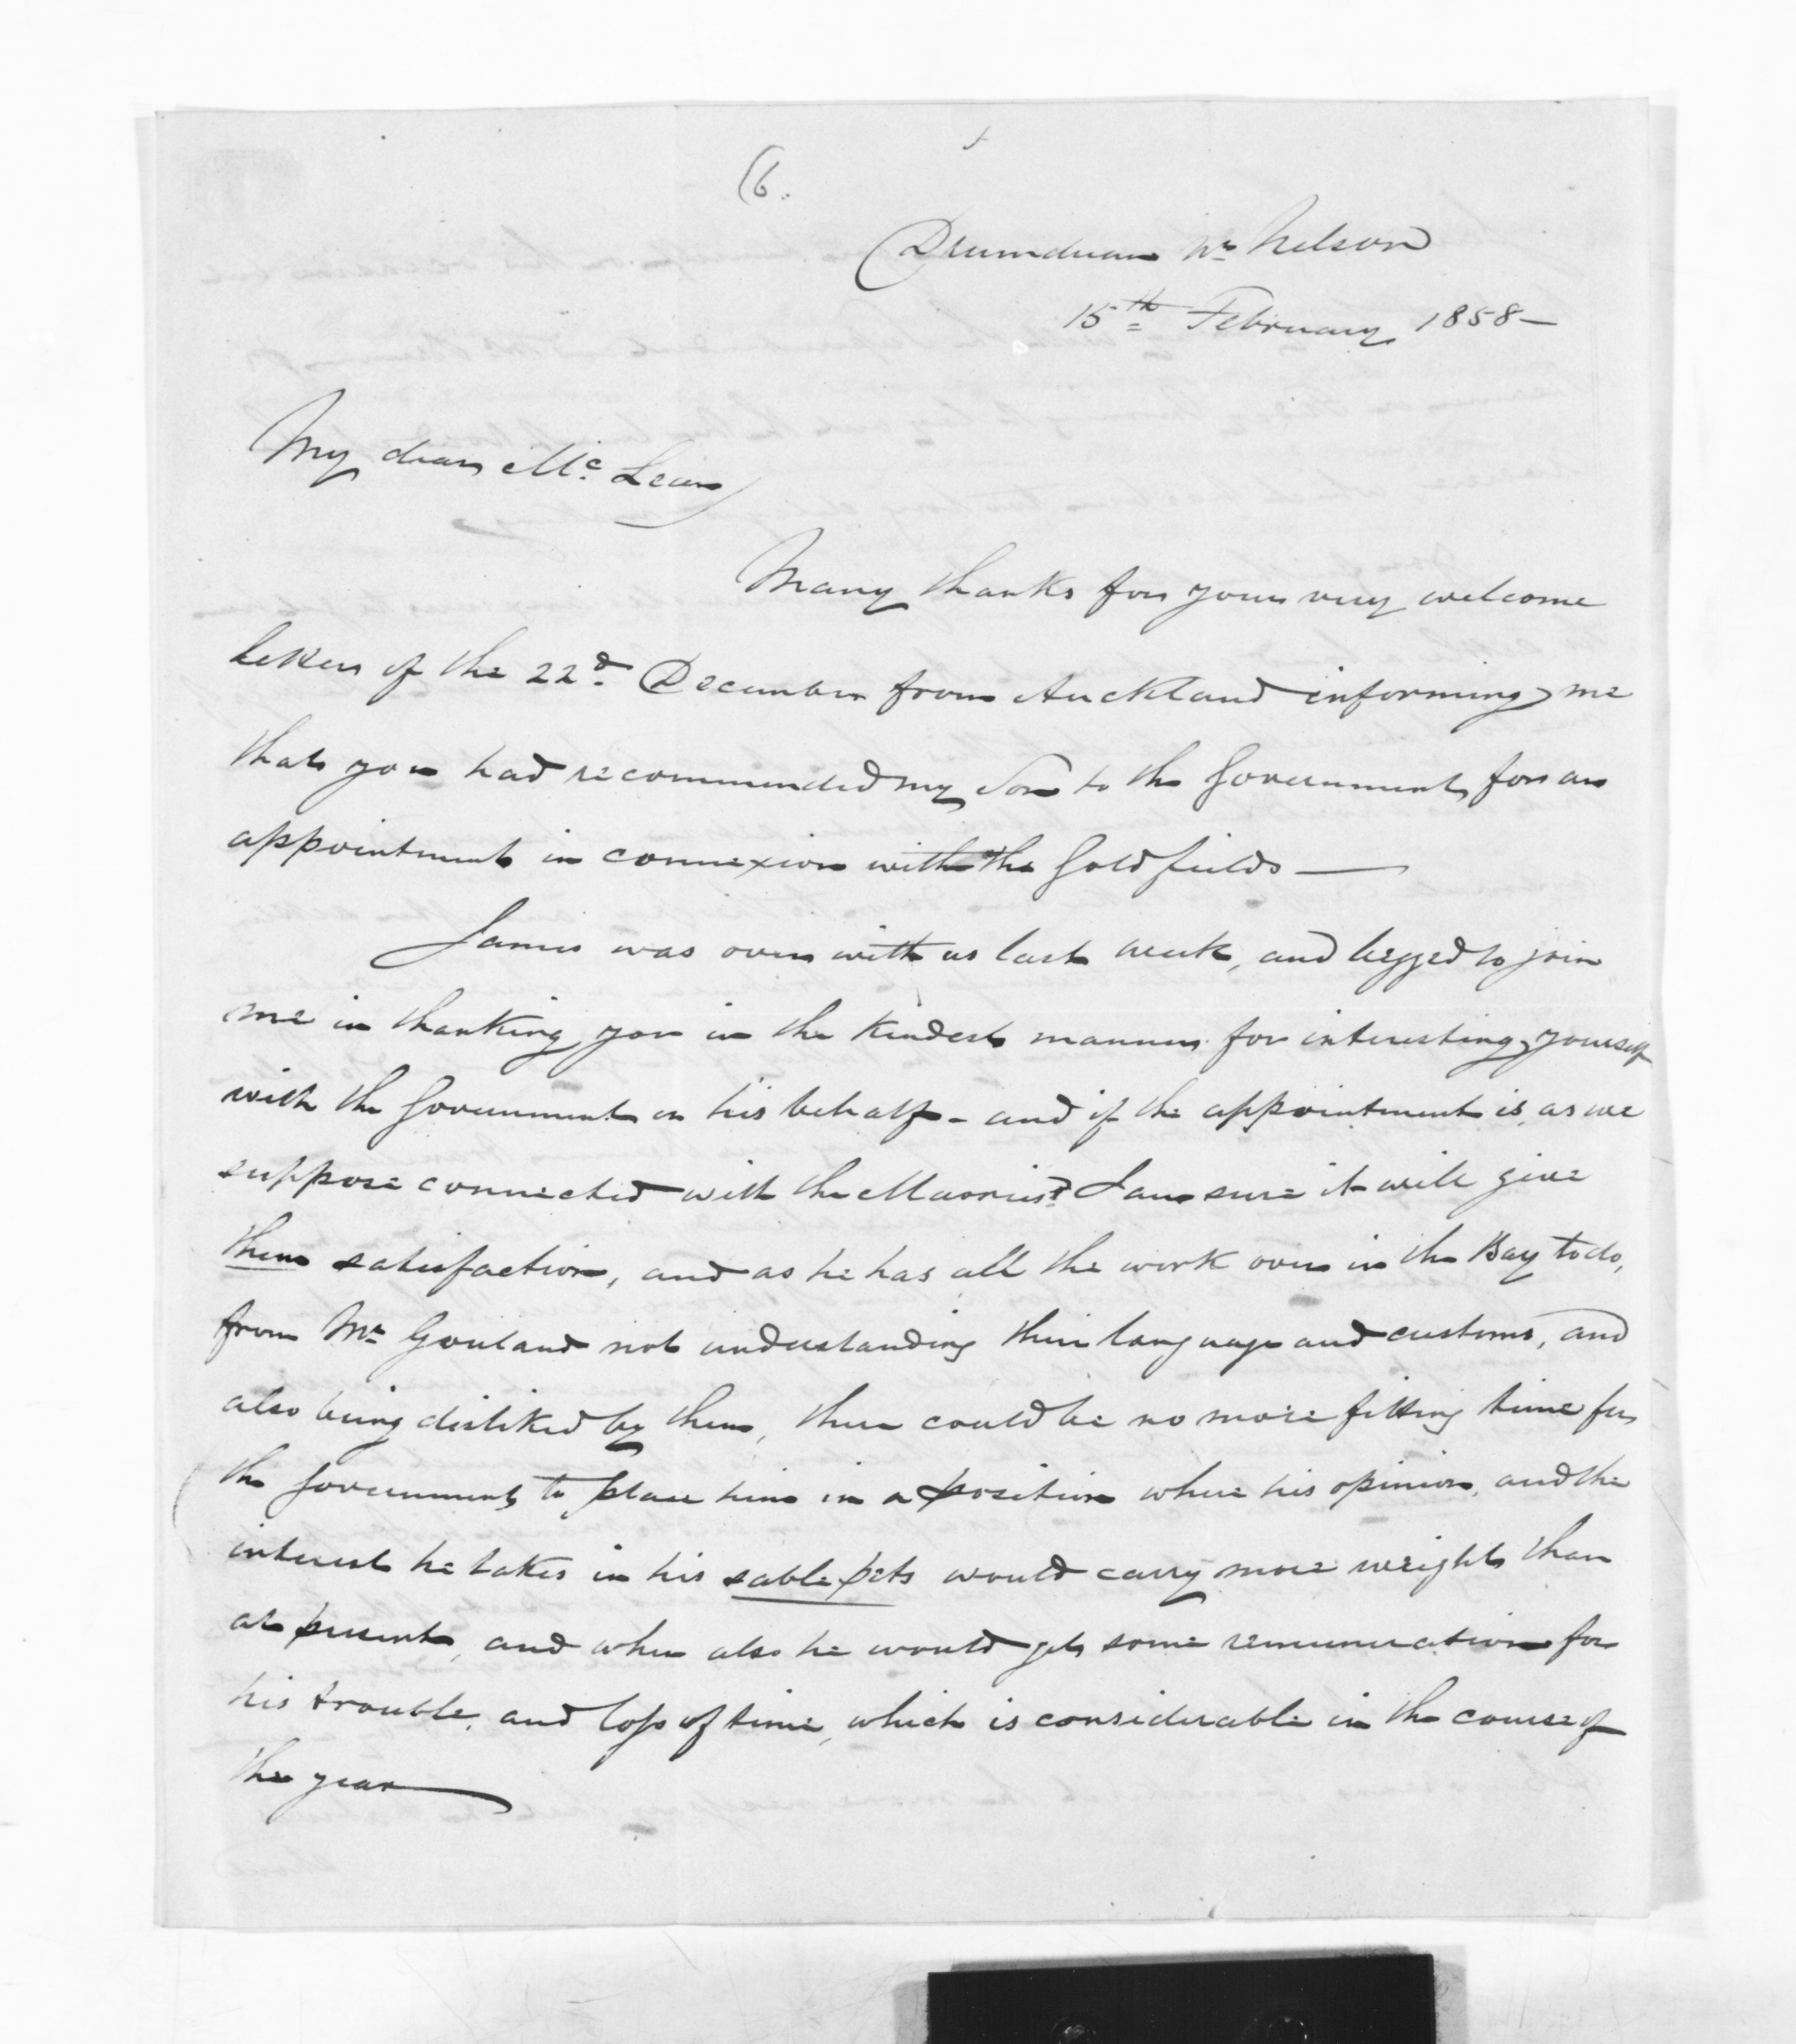 (6.
Drumduan Nr Nelson
15th February 1858 —
My dear McLean
Many thanks for your very welcome
letter of the 22d December from Auckland informing me
that you had recommended my Son to the Government for an
appointment in connexion with the Goldfields —
James was over with us last week, and begged to join
me in thanking you in the kindest manner for interesting yourself
with the Government on his behalf - and if the appointment is, as we
suppose connected with the Maories? I am sure it will give
them satisfaction, and as he has all the work over in the Bay to do,
from Mr Gouland not understanding their language and customs, and
also being disliked by them, there could be no more fitting time for
the Government to place him in a position where his opinion, and the
interest he takes in his sable pets would carry more weight than
at present, and when also he would get some remuneration for
his trouble, and loss of time, which is considerable in the course of
the year